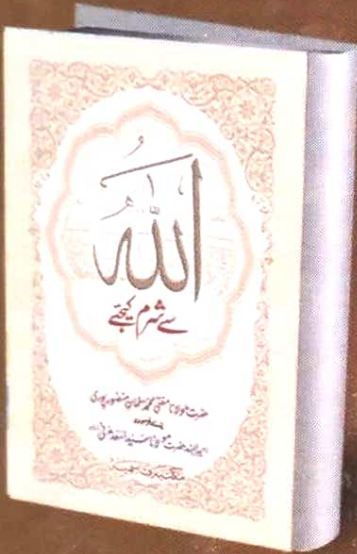 اللہ
سے شرم کیجئے
حضرت مولانا مفتی محمد سلمان منصورپوری
حضرت مولانا سید اسعد مدنی